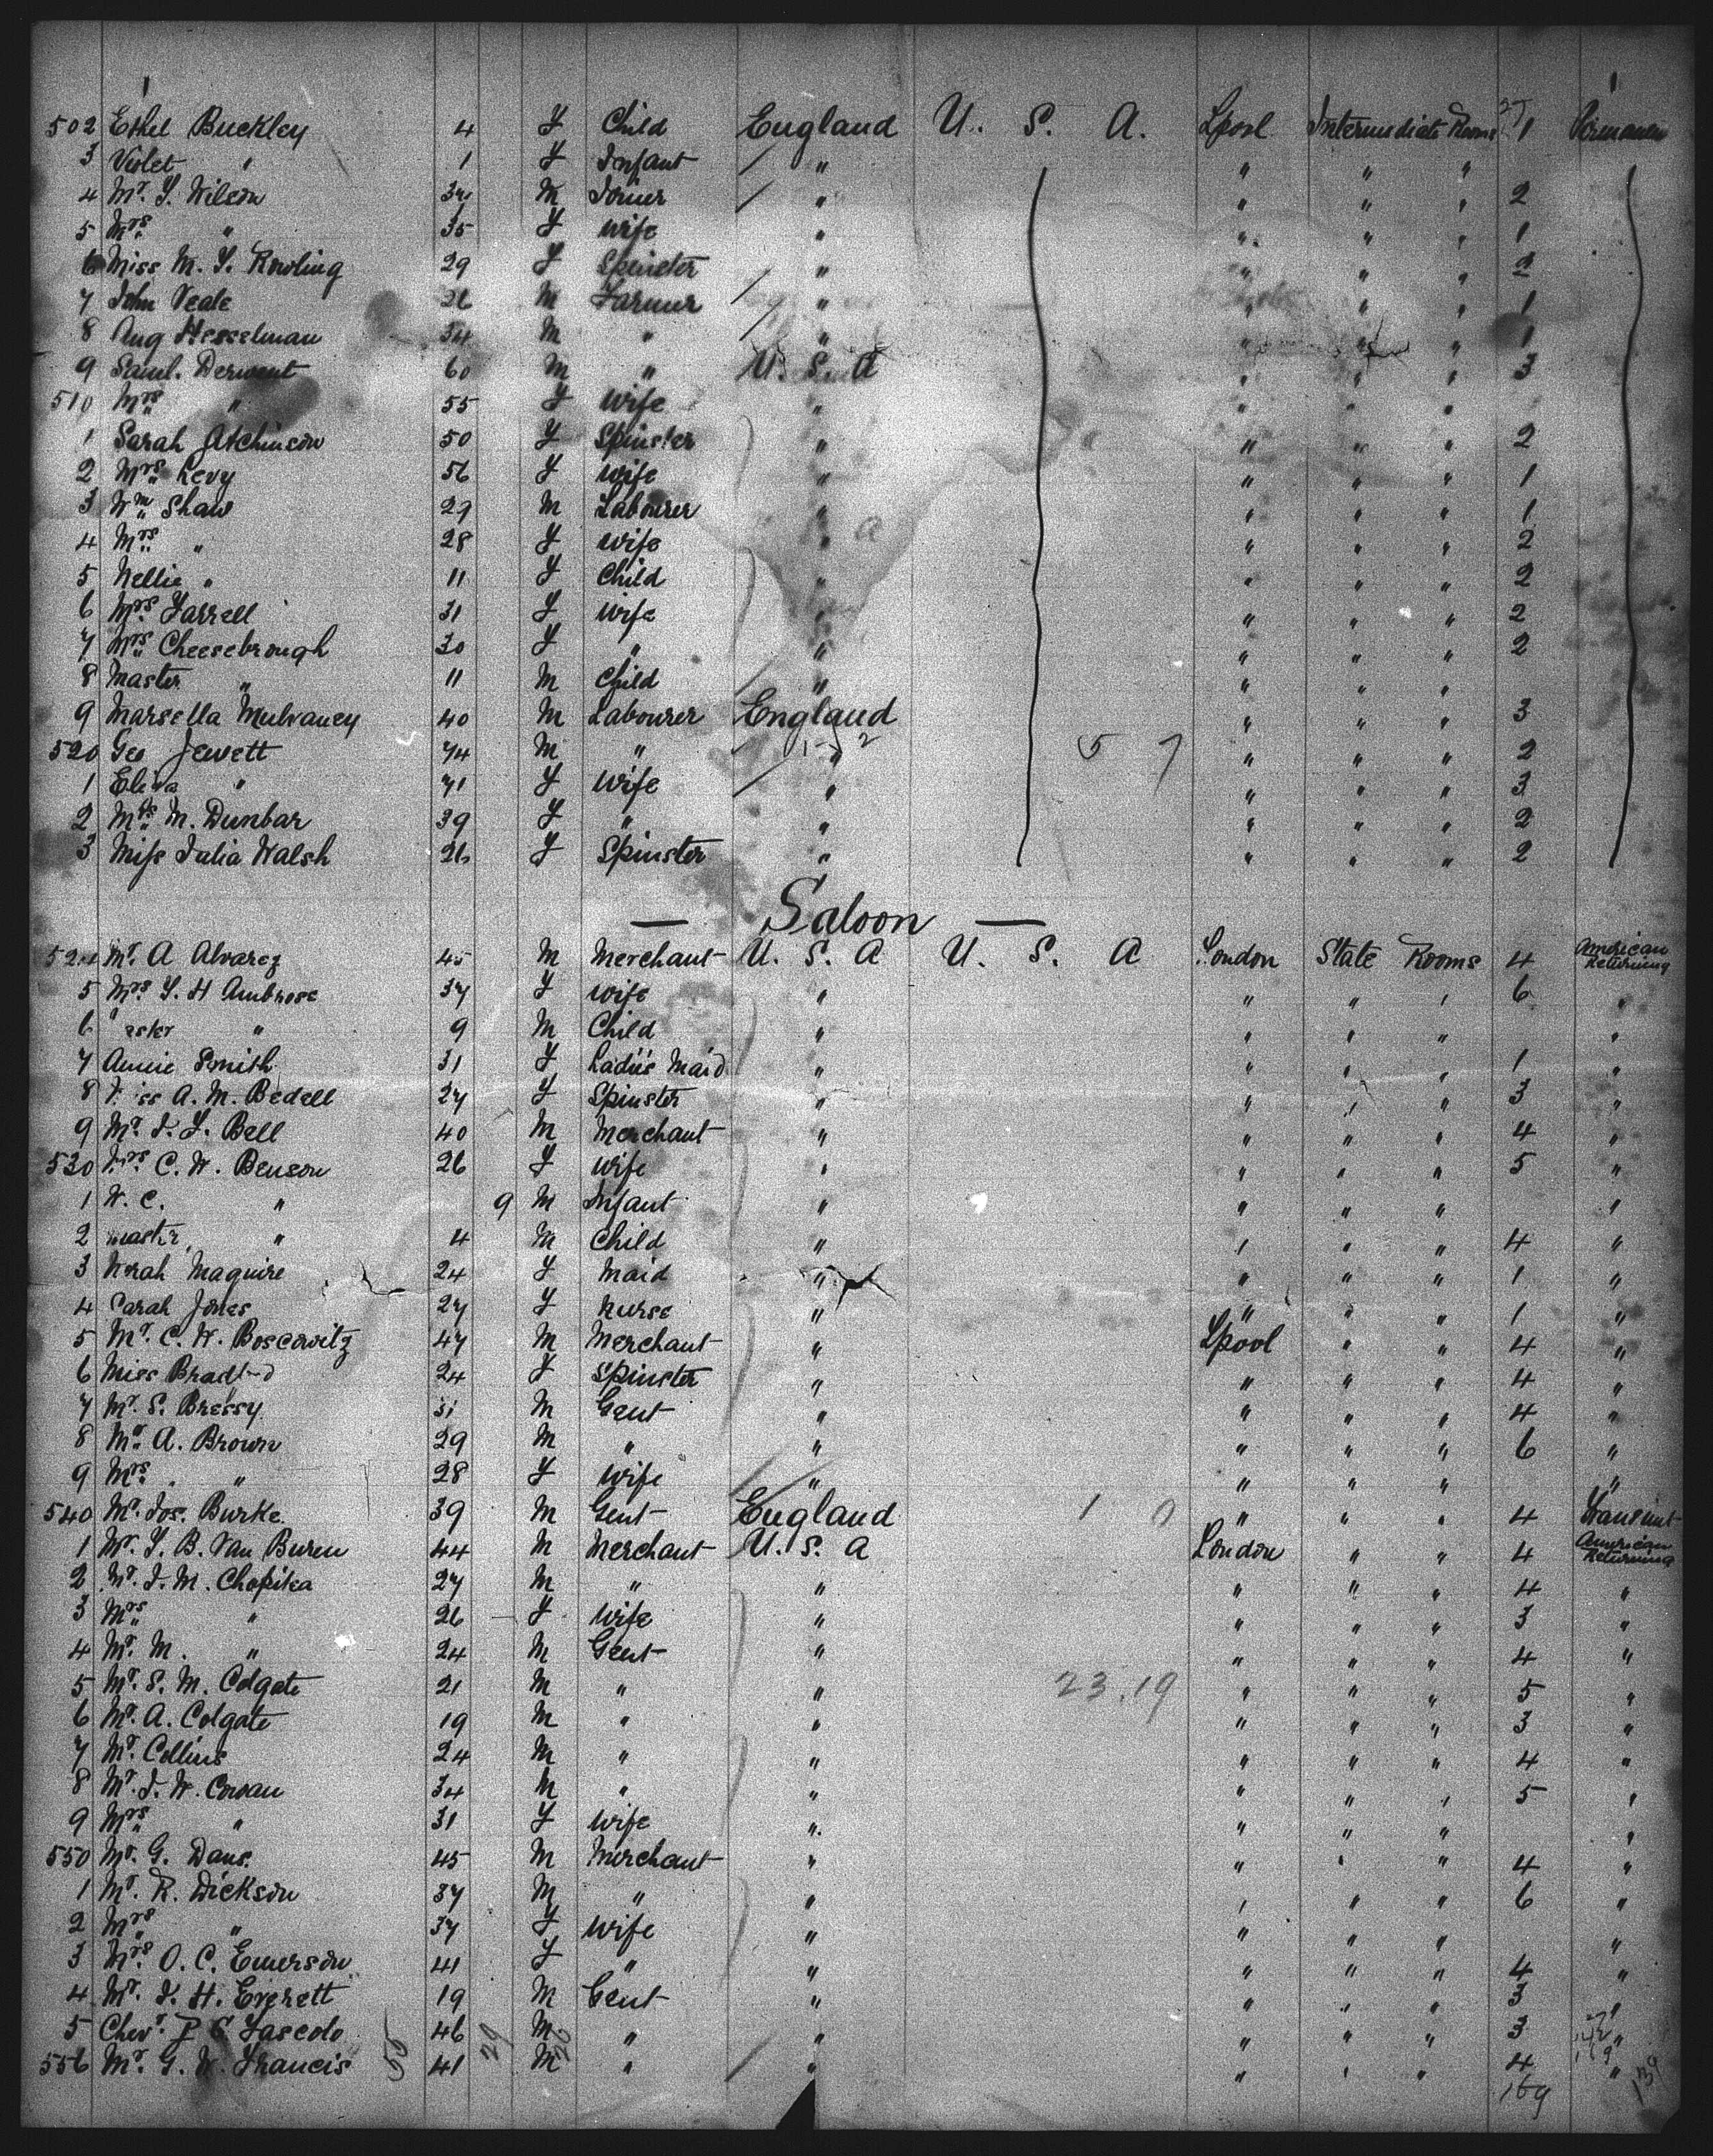 502 Ethel Buckley 4 F Child England U. S. A. Lpool Intermediate Rooms 1
3 Violet " 1 F Infant " " " "
4 Mr. F. Wilson M Joiner " " " " 2
5 Mrs. " 35 F wife " " " " 1
6 Miss M. F. Rowling 29 F Spinster " " " " 2
7 John Veale 26 M Farmer " " " " 1
8 Aug Hesselman 34 M " " " " " 1
9 Saml. Derwent 60 M " U. S. A " " " 3
510 Mrs " 55 F wife " " " "
1 Sarah Atchinson 50 F Spinster " " " " 2
2 Mrs. Levy 56 F wife " " " " 1
3 Wm Shaw 29 M Labourer " " " " 1
4 Mrs " 28 F wife " " " " 2
5 Nellie " 11 F Child " " " " 2
6 Mrs. Farrell 31 F wife " " " " 2
7 Mrs. Cheesebrough 30 F " " " " " 2
8 Master " 11 M Child " " " "
9 Marsella Mulvaney 40 M Labourer England " " " 3
520 Geo Jewett 74 M " " 5 7 " " " 2
1 Eliza " 71 F Wife " " " " 3
2 Mrs. M. Dunbar 39 F " " " " " 2
3 Miss Julia Walsh 26 F Spinster " " " " 2
— Saloon —
524 Mr. A Alvarez 45 M Merchant U. S. A U. S. A London State Rooms 4 American Returning
5 Mrs. F. H Ambrose 37 F wife " " " " 6 "
6 " " 9 M Child " " " " "
7 Annie Smith 31 F Ladies Maid " " " " 1 "
8 Miss A. M. Bedell 27 F Spinster " " " " 3 "
9 Mr. J. F. Bell 40 M Merchant " " " " 4 "
530 Mrs. C. W. Benson 26 F wife " " " " 5 "
1 W. C. " 9 M Infant " " " " "
2 master " 4 M Child " " " " 4 "
3 Norah Maguire 24 F Maid " " " " 1 "
4 Sarah Jones 27 F Nurse " " " " 1 "
5 Mr. C. W. Boscowitz 47 M Merchant " Lpool " " 4 "
6 Miss 24 F Spinster " " " " 4 "
7 Mr. S. Bressy 31 M Gent " " " " 4 "
8 Mr. A. Brown 29 M " " " " " 6 "
9 Mrs. " 28 F wife " " " " "
540 Mr. Jos. Burke 39 M Gent England 1 0 " " " 4 Transient
1 Mr. F. B. Van Buren 44 M Merchant U. S. A London " " 4 American Returning
2 Mr. J. M. Chopika 27 M " " " " " 4 "
3 Mrs " 26 F wife " " " " 3 "
4 Mr. M. " 24 M Gent " " " " 4 "
5 Mr. S. M. Colgate 21 M " " 23.19 " " " 5 "
6 Mr. A. Colgate 19 M " " " " " 3 "
7 Mr. Collins 24 M " " " " " 4 "
8 Mr. J. W. Cowan 34 M " " " " " 5 "
9 Mrs " 31 F wife " " " " "
550 Mr. G. 45 M Merchant " " " " 4 "
1 Mr. R. Dickson 37 M " " " " " 6 "
2 Mrs " 37 F wife " " " " "
3 Mrs. O. C. Emerson 41 F " " " " " 4 "
4 Mr. J. H. Everett 19 M Gent " " " " 3 "
5 Chevr. 46 M " " " " " 3 "
556 Mr. G. W. Francis 41 M " " " " " 4 "
55 29 26 169 139